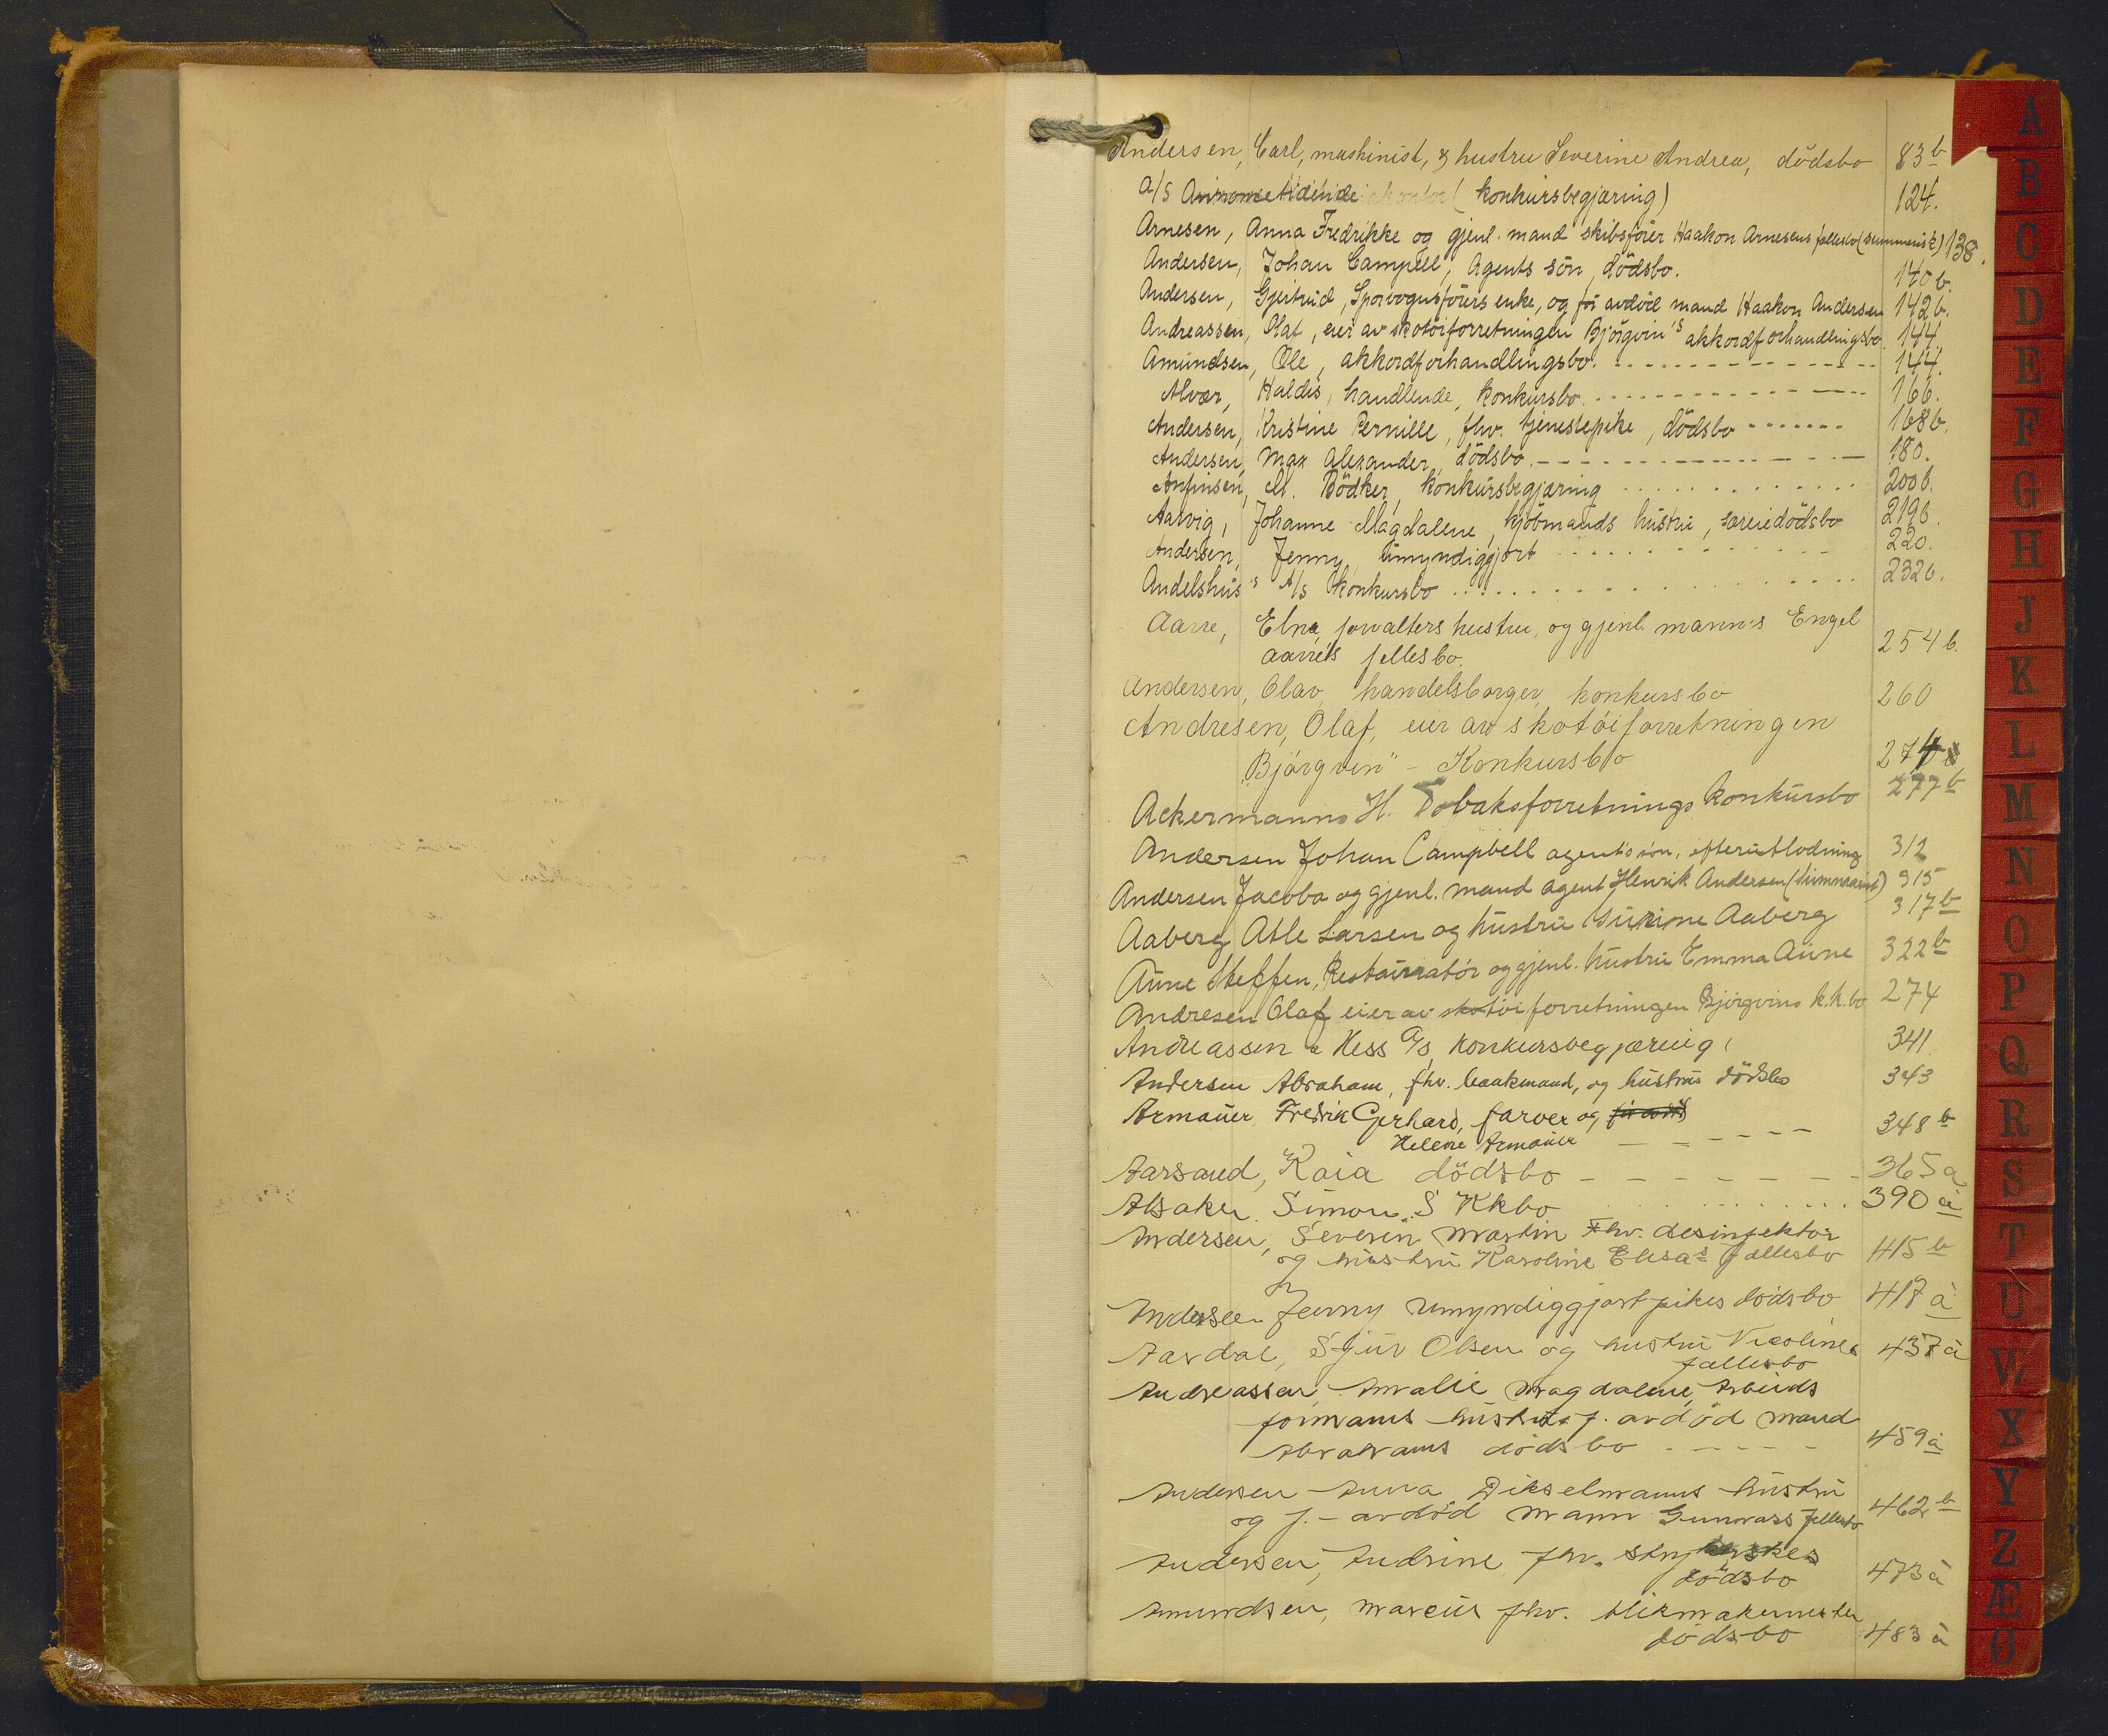 Andersen, Carl, maskinist, & hustru Severine Andrea, dödsbo 83b
A/S Annonsetidende (konkursbegjæring) 124.
Arnesen, Anna Fredrikke og gjenl. mand skibsförer Haakon Arnesens fællesbo (summarisk) 138.
Andersen, Johan Campell, Agents sön, dödsbo. 140b.
Andersen, Gjertrud, Sporvognsförers enke, og för avdöd mand Haakon Andersen 142b.
Andreassen, Olaf, eier av skotöiforretningen Björgvin's akkordforhandlingsbo. 144.
Amundsen, Ole, akkordforhandlingsbo. 144.
Alvær, Haldis, handlende, konkursbo. 166.
Andersen, Kristine Pernille, fhv. tjenestepike, dödsbo 168b.
Andersen, Max Alexander, dödsbo. 180.
Anfinsen, M. Bödker, konkursbegjæring 200b.
Aarvig, Johanne Magdalene, kjöbmands hustru, særeiedödsbo 219b.
Andersen, Jenny, umyndiggjort 220.
Andelshus's A/S konkursbo 232b.
Aarre, Elna, forvalters hustru, og gjenl. mann's Engel
Aarre's fellesbo. 254b.
Andersen, Olav, handelsborger, konkursbo 260
Andresen, Olaf, eier av skotöiforretningen
"Björgvin" - Konkursbo 274
Ackermanns H. Tobaksforretnings konkursbo 277b
Andersen Johan Campbell agents sön, efterutlodning 312
Andersen Jacoba og gjenl. mand agent Henrik Andersen (summarisk) 315
Aaberg Atle Larsen og hustru Aaberg 317b
Aune Steffen, Restauratör og gjenl. hustru Emma Aune 322b
Andresen Olaf eier av skotöiforretningen Björgvins k.k.bo 274
Andreassen & Hess A/S, konkursbegjæring 341.
Andersen Abraham, fhv. baakmand, og hustrus dödsbo 343
Armauer Fredrik Gerhard, farver og för avdöd
Helene Armauer 348b
Aarsand, Kaia dödsbo 365a
Alsaker Simon S Kkbo 390a
Andersen, Severin Martin Fhv. desinfektör
og hustru Karoline Elisas fællesbo 415b
Andersen Jenny umyndiggjort pikes dödsbo 417a
Aardal, Sjur Olsen og hustru Nicolines
fællesbo 437a
Andreassen, Amalie Magdalene, Arbeids
formanns hustru & f. avdöd mand
Abrahams dödsbo 459a
Andersen Anna Dikselmanns hustru
og f. avdöd mann Gunnars fellesbo 462b
Andersen, Andrine fhv. strykerskes
dödsbo 473a
Amundsen, Marcus fhv. blikmakermester
dödsbo 483a
A
B
C
D
E
F
G
H
J
K
L
M
N
O
P
Q
R
S
T
U
W
X
Y
Z
Æ
Ø